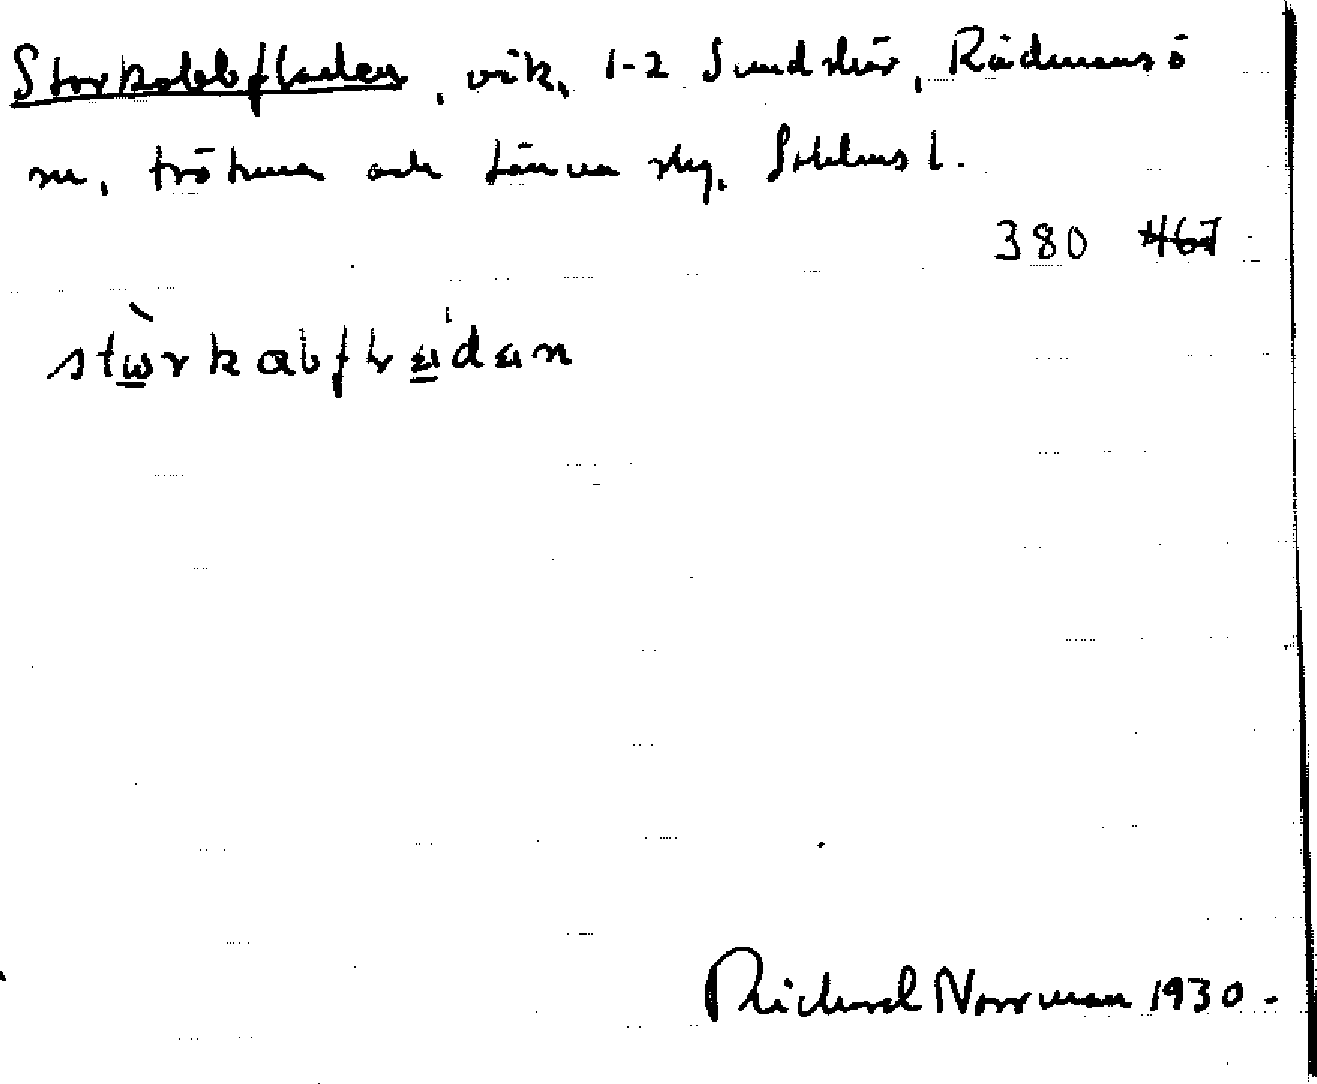 Storkobbfladen, vik, 1-2 Sundskär, Rådmansö
sn, Frötuna och Länna slg, Sthlms l.
380 467
stωrkabfladan
Richard Norrman 1930.